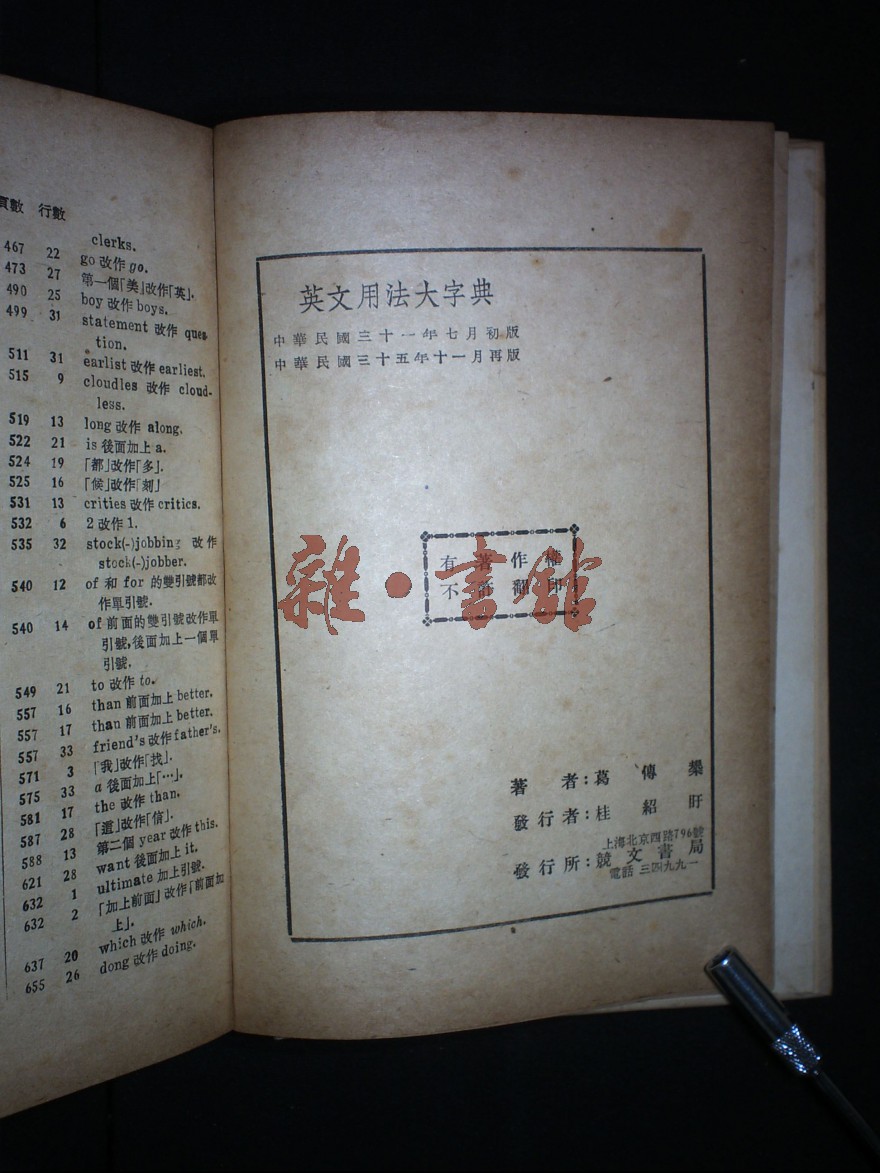 頁數 行數
clerks.
467 22 go 改作 go.
473 27 第一個「美」改作「英」.
490 25 boy 改作 boys.
499 31 statement 改作 ques-
tion.
511 31 earlist 改作 earliest.
515 9 cloudles 改作 cloud-
less.
519 13 long 改作 along.
522 21 is 後面加上 a.
524 19 「都」改作「多」.
525 16 「候」改作「刻」
531 13 crities 改作 critics.
532 6 2 改作 1.
535 32 stock(-)jobbing 改作
stock(-)jobber.
540 12 of 和 for 的雙引號都改
作單引號.
540 14 of 前面的雙引號改作單
引號,後面加上一個單
引號.
549 21 to 改作 to.
557 16 than 前面加上 better.
557 17 than 前面加上 better.
557 33 friend's 改作 father's.
571 3 「我」改作「找」.
575 33 a 後面加上「…」.
581 17 the 改作 than.
587 28 「這」改作「信」.
588 13 第二個 year 改作 this.
621 28 want 後面加上 it.
632 1 ultimate 加上引號.
632 2 「加上前面」改作「前面加
上」.
637 20 which 改作 which.
655 26 dong 改作 doing.
英文用法大字典
中華民國三十一年七月初版
中華民國三十五年十一月再版
有著作權
不許翻印
雜·書館
著者:葛傳槼
發行者:桂紹盱
上海北京西路796號
發行所:競文書局
電話 三四九九一